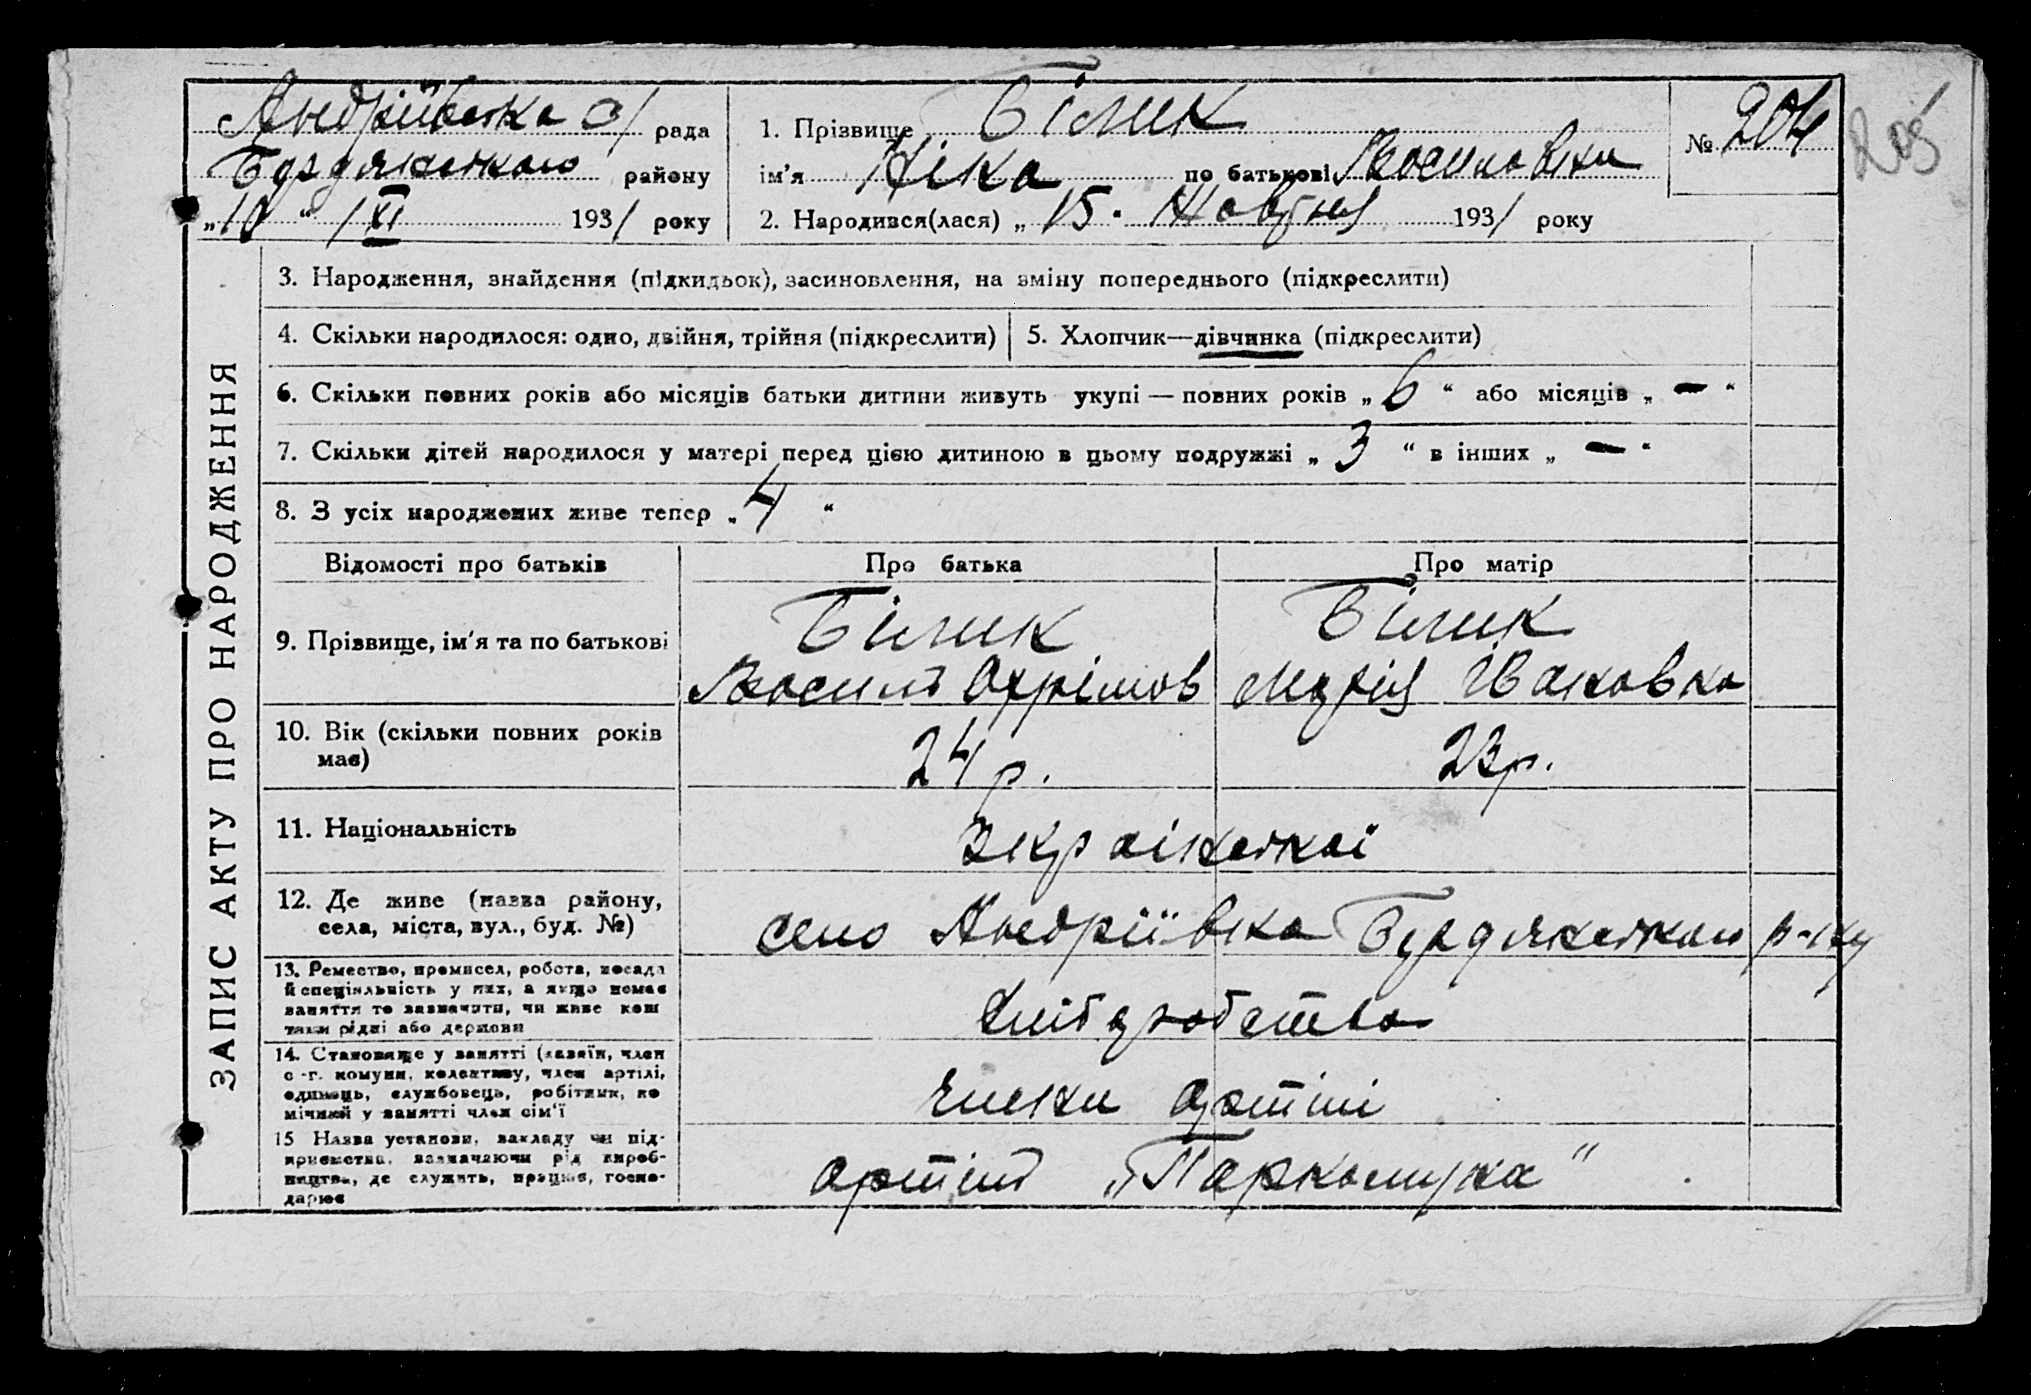 Андрієвска с/ рада
Бердянського району
„10“ XI 1931 року
1. Прізвище Білик
ім'я Ніна по батькові Василовни
2. Народився(лася) „15" Жовтня 1931 року
№ 204
205
ЗАПИС АКТУ ПРО НАРОДЖЕННЯ
3. Народження, знайдення (підкидьок), засиновлення, на зміну попереднього (підкреслити)
4. Скільки народилося: одно, двійня, трійня (підкреслити)
5. Хлопчик—дівчинка (підкреслити)
6. Скільки повних років або місяців батьки дитини живуть укупі — повних років „6“ або місяців „—“
7. Скільки дітей народилося у матері перед цією дитиною в цьому подружжі „3“ в інших „—“
8. З усіх народжених живе тепер „4“
Відомості про батьків
Про батька
Про матір
9. Прізвище, ім'я та по батькові
Білик
Василь Охрімов
Білик
Марія Івановна
10. Вік (скільки повних років
має)
24 р.
23 р.
11. Національність
Українські
12. Де живе (назва району,
села, міста, вул., буд. №)
село Андріївка Бердянського р-ну
13. Ремество, промисел, робота, посада
й спеціяльність у них, а якщо немає
заняття то зазначити, чи живе кошт
рідні або держави
Хліборобство
14. Становище у занятті (хазяїн, член
с.-г. комуни, колективу, член артілі,
одинець, службовець, робітник, по
мічний у занятті член сім'ї
члени артілі
15 Назва установи, закладу чи під-
приємства, зазначаючи рід вироб-
ництва, де служить, працює, госпо-
дарює
артіль